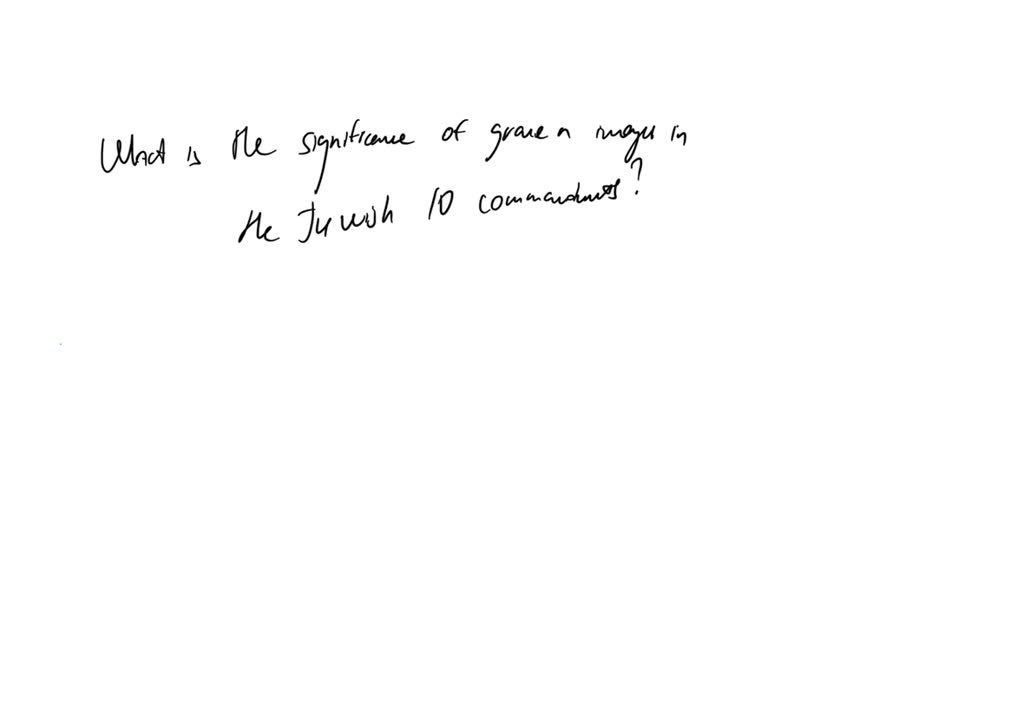 What is the significance of graven images in
the Jewish 10 commandments?